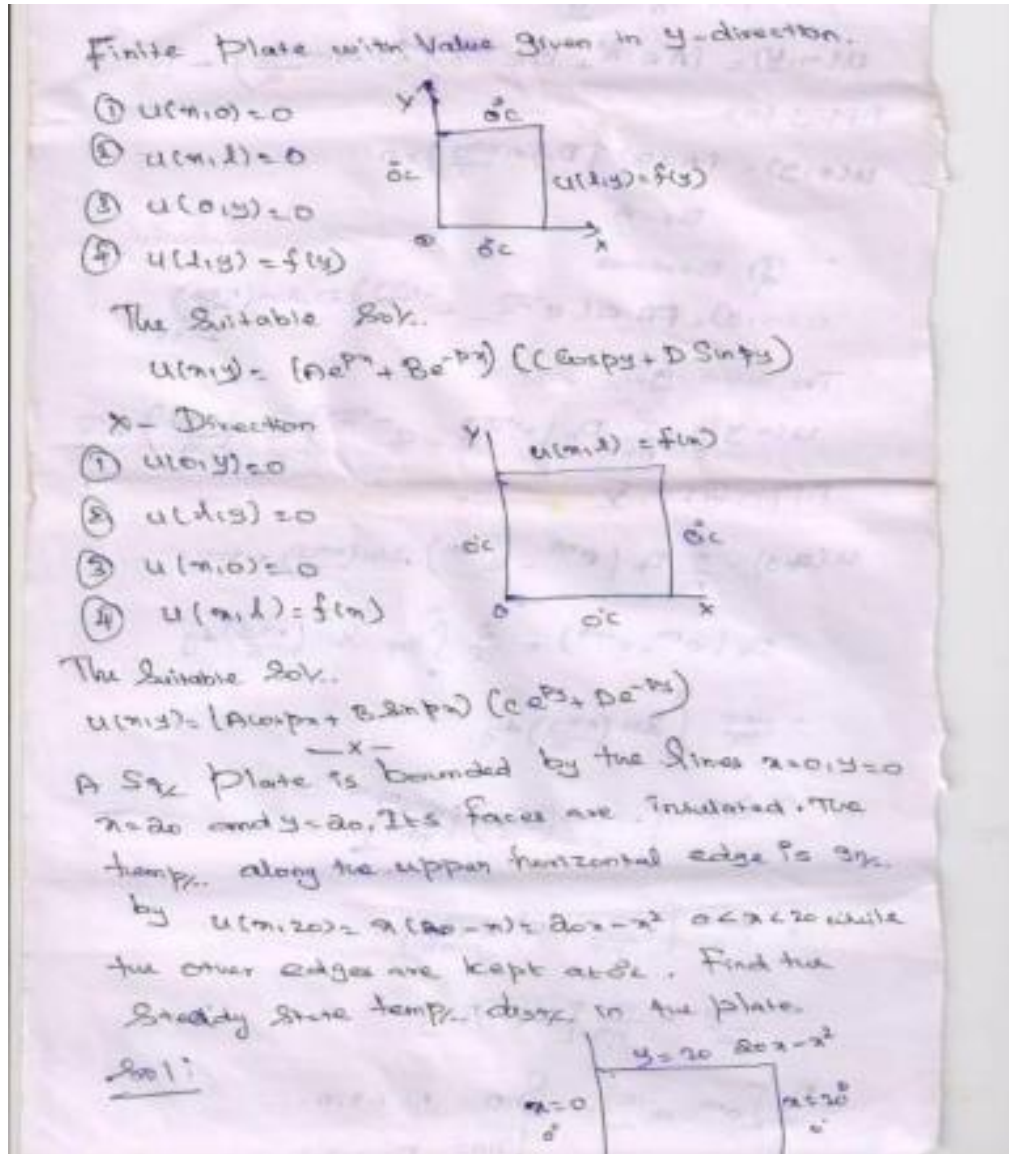 Finite Plate with Value given in y-direction.
① u(x,0)=0
② u(x,l)=0
③ u(0,y)=0
④ u(l,y)=f(y)
Y
0°c
0°c
u(l,y)=f(y)
0
0°c
X
The Suitable Sol.
u(x,y)= (Ae^px + Be^-px) (C Cospy + D Sinpy)
x- Direction
① u(0,y)=0
② u(l,y)=0
③ u(x,0)=0
④ u(x,l)=f(x)
Y
u(x,l) = f(x)
0°c
0°c
0
0°c
X
The Suitable Sol.
u(x,y)= (Acospx + B Sinpx) (Ce^py + De^-py)
—x—
A Sq. Plate is bounded by the lines x=0, y=0
x=20 and y=20. Its faces are insulated. The
temp. along the upper horizontal edge is gn.
by u(x,20)= x(20-x)= 20x-x² 0<x<20 while
the other edges are kept at 0°c. Find the
Steady State temp. in the plate.
Sol:
y=20 20x-x²
x=0
0°
x=20
0°